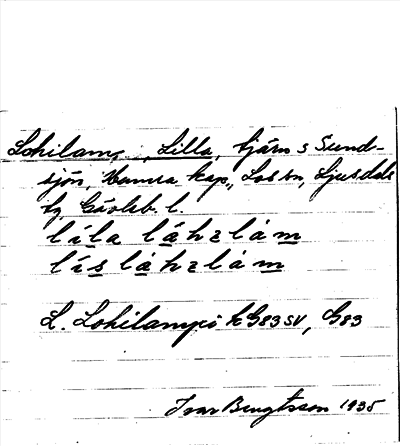 Lohilam, Lilla, tjärn s Sund-
sjön, Hamra kap., Los sn, Ljusdals
tg Gävleb. l.
lila láhzlám
lís láhzlám
L. Lohilampi k G83 SV, G83
Ivar Bengtsson 1935